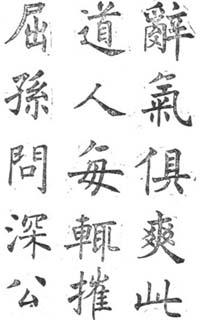 辭氣俱爽此
道人每輒摧
屈孫問深公